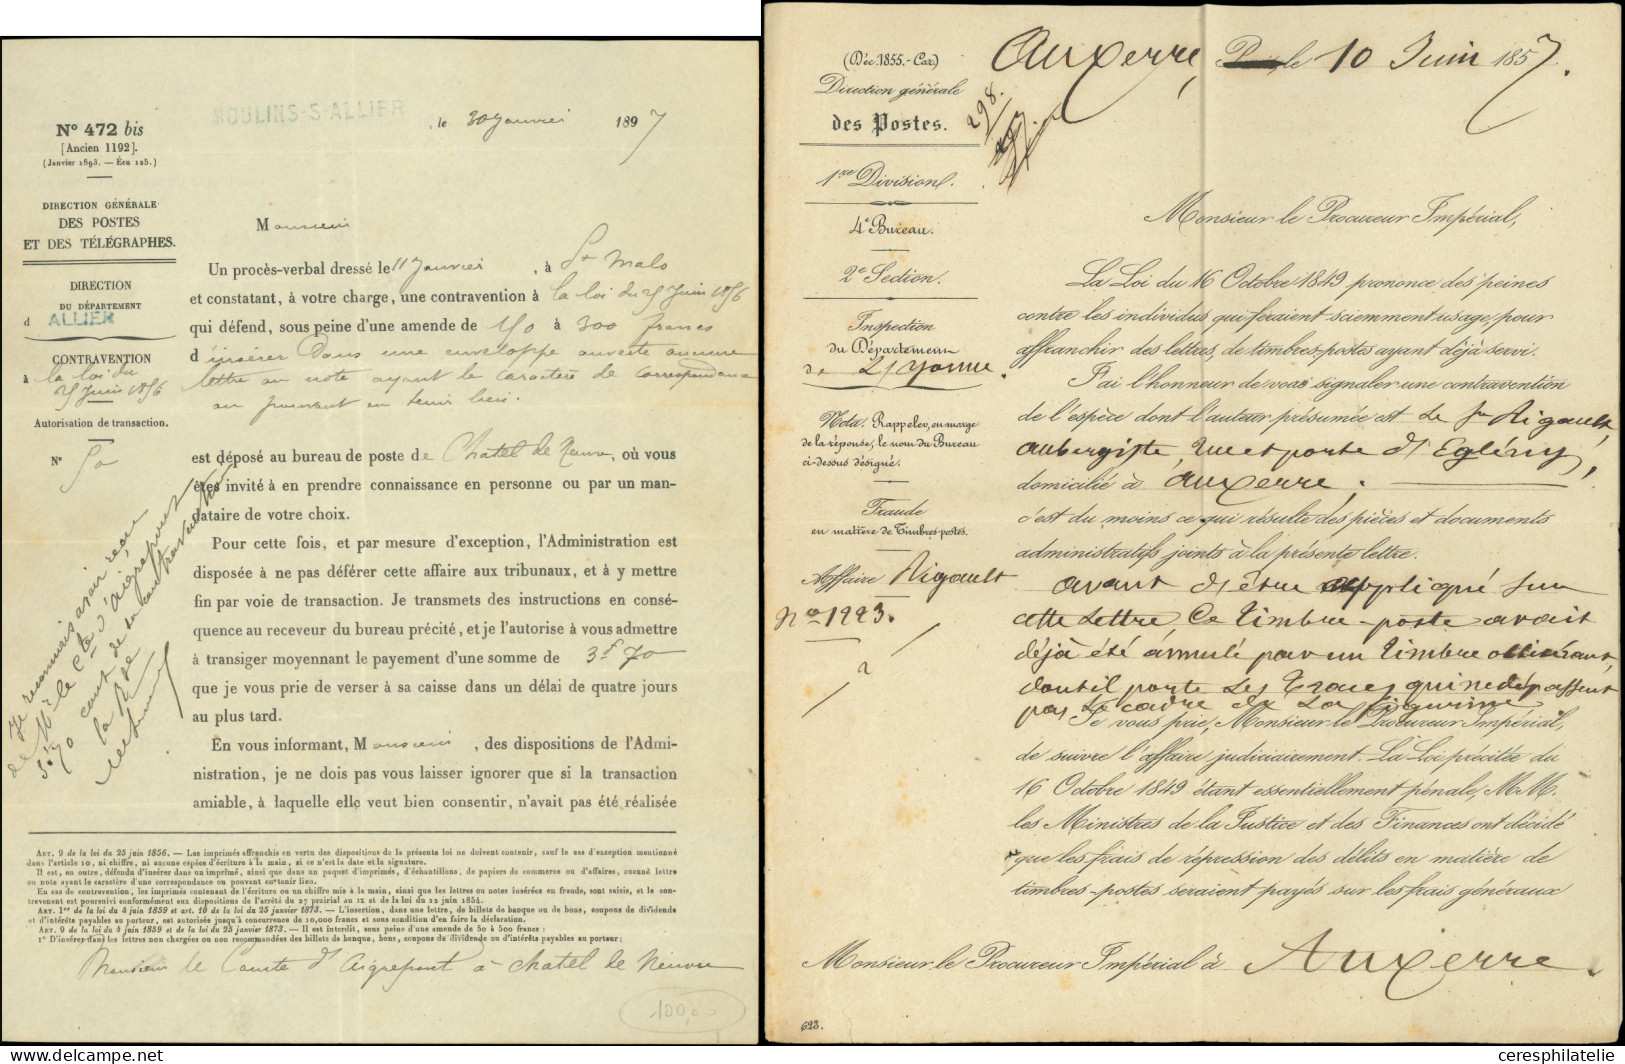 MOULINS-S-ALLIER
, le 30 Janvier 1897
N° 472 bis
[Ancien 1192].
(Janvier 1893. — Écu 125.)
DIRECTION GÉNÉRALE
DES POSTES
ET DES TÉLÉGRAPHES.
DIRECTION
DU DÉPARTEMENT
d ALLIER
CONTRAVENTION
à la loi du
25 Juin 1856
Autorisation de transaction.
N° 50
Monsieur
Un procès-verbal dressé le 11 Janvier , à St Malo
et constatant, à votre charge, une contravention à la loi du 25 Juin 1856
qui défend, sous peine d'une amende de 150 à 300 francs
d'insérer dans une enveloppe ouverte aucune
lettre ou note ayant le caractère de correspondance
ou pouvant en tenir lieu.
est déposé au bureau de poste de Chatel de Neuvre, où vous
êtes invité à en prendre connaissance en personne ou par un man-
dataire de votre choix.
Pour cette fois, et par mesure d'exception, l'Administration est
disposée à ne pas déférer cette affaire aux tribunaux, et à y mettre
fin par voie de transaction. Je transmets des instructions en consé-
quence au receveur du bureau précité, et je l'autorise à vous admettre
à transiger moyennant le payement d'une somme de 3f 70
que je vous prie de verser à sa caisse dans un délai de quatre jours
au plus tard.
En vous informant, Monsieur , des dispositions de l'Admi-
nistration, je ne dois pas vous laisser ignorer que si la transaction
amiable, à laquelle elle veut bien consentir, n'avait pas été réalisée
Je reconnais avoir reçu
de Mr le Cte d'Aigrepont
la
ART. 9 de la loi du 25 juin 1856. — Les imprimés affranchis en vertu des dispositions de la présente loi ne doivent contenir, sauf le cas d'exception mentionné
dans l'article 10, ni chiffre, ni aucune espèce d'écriture à la main, si ce n'est la date et la signature.
Il est, en outre, défendu d'insérer dans un imprimé, ainsi que dans un paquet d'imprimés, d'échantillons, de papiers de commerce ou d'affaires, aucune lettre
ou note ayant le caractère d'une correspondance ou pouvant en tenir lieu.
En cas de contravention, les imprimés contenant de l'écriture ou un chiffre mis à la main, ainsi que les lettres ou notes insérées en fraude, sont saisis, et le con-
trevenant est poursuivi conformément aux dispositions de l'arrêté du 27 prairial an IX et de la loi du 22 juin 1854.
ART. 1er de la loi du 4 juin 1859 et art. 10 de la loi du 25 janvier 1873. — L'insertion, dans une lettre, de billets de banque ou de bons, coupons de dividende
et d'intérêts payables au porteur, est autorisée jusqu'à concurrence de 10,000 francs et sous condition d'en faire la déclaration.
ART. 9 de la loi du 4 juin 1859 et de la loi du 25 janvier 1873. — Il est interdit, sous peine d'une amende de 50 à 500 francs :
1° D'insérer dans les lettres non chargées ou non recommandées des billets de banque, bons, coupons de dividende ou d'intérêts payables au porteur;
Monsieur le Comte d'Aigrepont à Chatel de Neuvre
(Déc. 1855.-Car.)
Direction générale
des Postes.
1re Division.
4e Bureau.
2e Section.
Inspection
du Département
de L'Yonne.
Nota. Rappeler, en marge
de la réponse, le nom du Bureau
ci-dessus désigné.
Fraude
en matière de Timbres-postes.
Affaire Rigault
No 1223.
298.
Auxerre, Paris, le 10 Juin 1857.
Monsieur le Procureur Impérial,
La Loi du 16 Octobre 1849 prononce des peines
contre les individus qui feraient sciemment usage, pour
affranchir des lettres, de timbres-postes ayant déjà servi.
J'ai l'honneur de vous signaler une contravention
de l'espèce dont l'auteur présumé est Le Sr Rigault,
aubergiste, rue et porte d'Eglény,
domicilié à Auxerre.
c'est du moins ce qui résulte des pièces et documents
administratifs joints à la présente lettre.
avant d'être appliqué sur
cette Lettre Ce timbre-poste avait
déjà été annulé par un timbre oblitérant,
dont il porte Les Traces qui ne dépassent
pas Le cadre de La figurine
Je vous prie, Monsieur le Procureur Impérial,
de suivre l'affaire judiciairement. La Loi précitée du
16 Octobre 1849 étant essentiellement pénale, M.M.
les Ministres de la Justice et des Finances ont décidé
que les frais de répression des délits en matière de
timbres-postes seraient payés sur les frais généraux
Monsieur le Procureur Impérial à Auxerre.
623.
www.delcampe.net
ceresphilatelie